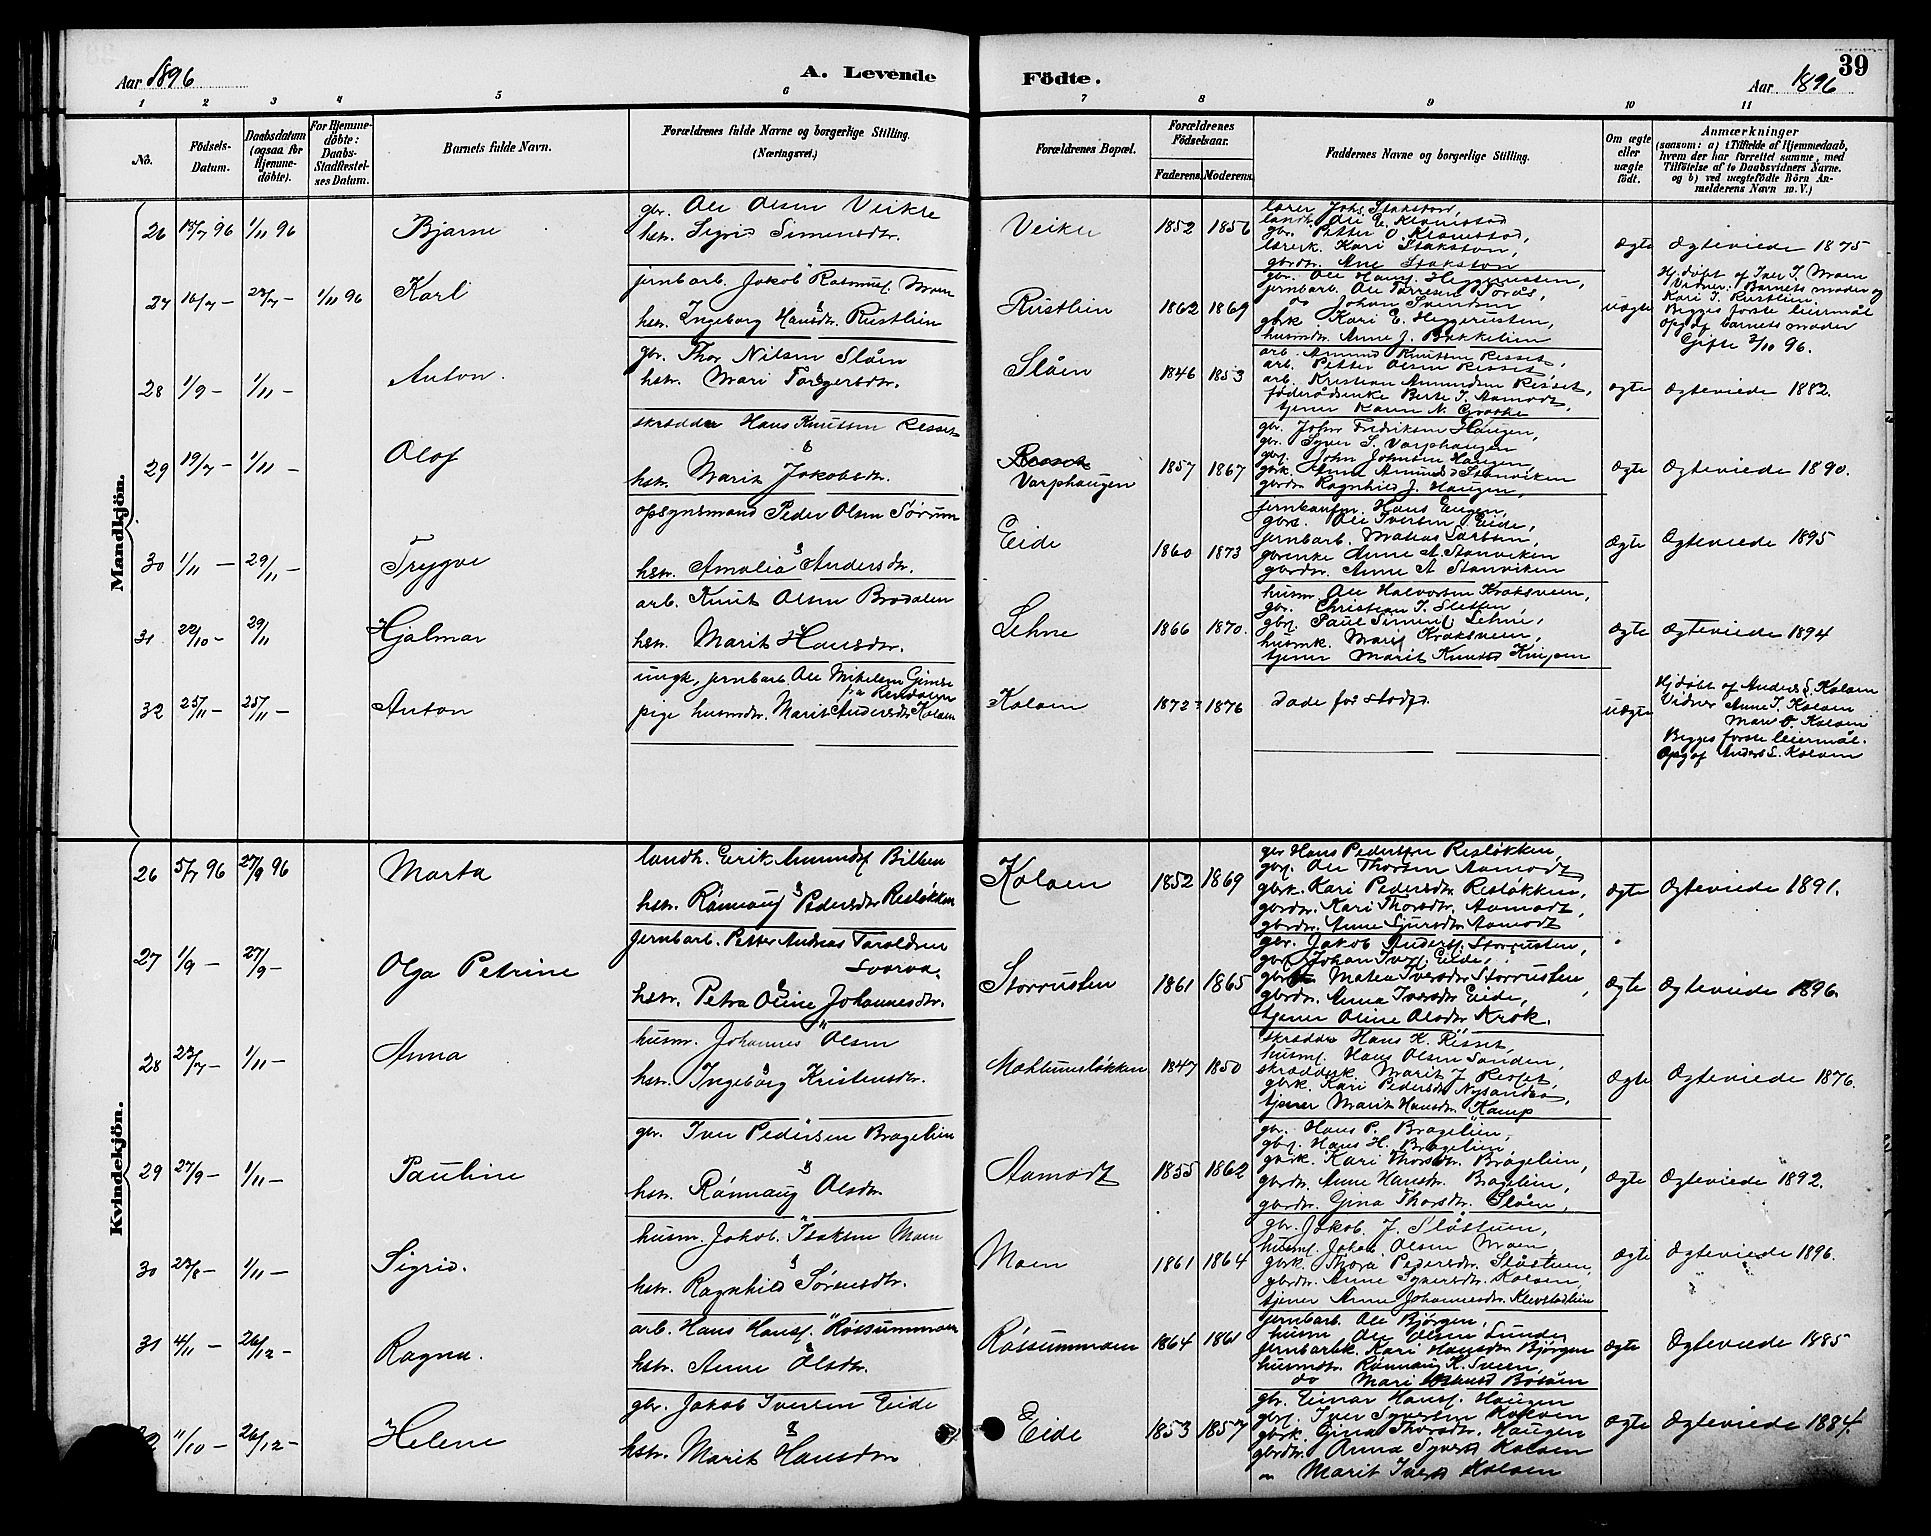 39
Aar 1896
A. Levende
Födte.
Aar 1896
1 2 3 4 5 6 7 8 9 10 11
No.
Födsels-Datum.
Daabsdatum (ogsaa for Hjemme-döbte).
For Hjemme-döbte: Daabs-Stadfestel-ses Datum.
Barnets fulde Navn.
Forældrenes fulde Navne og borgerlige Stilling. (Næringsvei.)
Forældrenes Bopæl.
Forældrenes Födselsaar.
Faderens. Moderens.
Faddernes Navne og borgerlige Stilling.
Om ægte eller uægte födt.
Anmærkninger
(saasom: a) i Tilfælde af Hjemmedaab, hvem der har forrettet samme, med Tilföielse af to Daabsvidners Navne. og b) ved uægtefödte Börn An-melderens Navn m. V.)
Mandkjön.
26 18/7 96 1/11 96 Bjarne
gbr. Ole Olsen Veikle
hstr. Sigrid Simensdtr.
Veikle 1852 1856
lærer Johs. Stakston,
landh. Ole E. Klomstad
gbr. Petter O. Klomstad,
lærerk. Kari Stakston,
gbrdtr. Ane Stakston
ægte Ægteviede 1875
27 16/7 - 23/7 - 1/11 96 Karl
jernbarb. Jakob Rasmusf. Moen
&
hstr. Ingeborg Hansdtr. Rustlien
Rustlien 1862 1869
gbr. Ole Hansf. Heggerusten,
jernbarb. Ole Torresen Toraas,
do Johan Svendsen
gbrk. Kari E. Heggerusten,
husmdtr. Anne J. Bakkelien
uægte
Hj.døbt af Iver I. Moen
Vidner: Barnets moder og
Kari I. Rustlien.
Begges første leiermål
opg. af barnets moder
Gifte 3/10 96.
28 1/9 - 1/11 - Anton.
gbr. Thor Nilsen Slåen
&
hstr. Mari Torgersdtr.
Slåen 1846 1853
arb. Amund Knutsen Risset,
arb. Petter Olsen Risset,
arb. Kristian Amundsen Risset,
føderådsenke Berte T. Aamodt,
tjener Karen N. Graathe
ægte Ægteviede 1882.
29 19/7 - 1/11 - Olaf
skrædder Hans Knutsen Risset
&
hstr. Marit Jakobsdtr.
Varphaugen 1857 1867
gbr. Johs Fredriksen Haugen,
gbr. Syver S. Varphaugen
gbrs. John Johnsen Haugen,
gbrk. Anne Amundsd Stenviken
gbrdtr. Ragnhild J. Haugen,
ægte Ægteviede 1890.
30 1/11 - 29/11 - Trygve
opsynsmand Peder Olsen Sørum
&
hstr. Amalia Andersdtr.
Eide 1860 1873
jernbanfm. Hans Engen,
gbrs. Ole Iversen Eide,
jernbarb. Mathias Larsen,
gbrenke Anne A. Stenviken
gbrdtr. Anne A Stenviken
Ægte Ægteviede 1895
31 22/10 - 29/11 Hjalmar
arb. Knut Olsen Brødalen
&
hstr. Marit Hansdtr.
Lehne 1866 1870.
husm. Ole Halvorsen Kroksveen,
gbr. Christian J. Sletten,
gbrs. Paul Simens. Lehne,
husmk. Marit Kroksveen,
tjener Marit Knutsd
ægte Ægteviede 1894
32 25/11 - 25/11 - Anton
ungk, jernbarb. Ole Mikelsen
fra Rendalen
pige husmdtr. Marit Andersdtr Kolaen
Kolaen 1872 1876
Døde før stadf.
uægte
Hj.døbt af Anders L. Kolaen
Vidner Anne I. Kolaen
Mari O. Kolaen
Begges første leiermål.
Opg. af Anders L. Kolaen
Kvindekjön.
26 5/7 96 27/9 96 Marta
landh. Erik Amundsf Billen
&
hstr. Rønnaug Pedersdtr Resløkken
Kolaen 1852 1869
gbr Hans Pedersen Resløkken
gbrs. Ole Thorsen Aamodt
gbrk. Kari Pedersdtr. Resløkken,
gbrdtr. Kari Thorsdtr. Aamodt,
gbrdtr. Anne Sjursdtr. Aamodt
ægte Ægteviede 1891.
27 1/9 - 27/9 - Olga Petrine
jernbarb. Petter Andreas Taraldsen
Svarva.
&
hstr. Petra Oline Johannesdtr.
Storrusten 1861 1865
gbr. Jakob Andersf. Storrusten,
gbrs. Johan Iversf. Eide,
Matea Iversdtr Storrusten
gbrdtr. Anna Iversdtr Eide,
tjener Oline Olsdtr. Krok.
ægte Ægteviede 1896.
28 23/7 - 1/11 - Anna
husm. Johannes Olsen
&
hstr. Ingeborg Kristensdtr.
Mæhlumsløkken 1847 1850
skrædder Hans K. Risset,
husms. Hans Olsen Sanden,
skrædderk. Marit J. Risset,
gbrk. Kari Pedersdtr
tjener Marit Hansdtr. Kamp
Ægte Ægteviede 1876.
29 27/9 - 1/11 - Pauline
gbr. Iver Pedersen Bragelien
&
hstr. Rønnaug Olsdtr.
Aamodt 1855 1862
gbr. Hans P. Bragelien,
gbrs. Hans H. Bragelien,
gbrk. Kari Thorsdtr. Bragelien,
gbrdtr. Anne Hansdtr. Bragelien,
gbrdtr. Gina Thorsdtr. Slåen,
ægte Ægteviede 1892.
30 23/8 - 1/11 - Sigrid.
husm. Jakob Isaksen Moen
&
hstr. Ragnhild Sørensdtr.
Moen 1861 1864
gbr. Jakob J. Slåstuen,
husms. Johan Olsen Moen,
gbrk. Thora Pedersdtr. Slåstuen,
gbrdtr. Anne Syversdtr. Kolaen,
tjener Anne Johannesdtr. Klevstadlien
ægte Ægteviede 1896.
31 4/11 - 26/12 - Ragna.
arb. Hans Hansf. Røssummoen
&
hstr. Anne Olsdtr.
Røssummoen 1864 1861
jernbarb. Ole Bjørgen,
husm Ole Olsen Lunde,
jernbarbk. Kari Hansdtr Bjørgen
husmdtr. Rønnaug K. Sveen,
do Mari
ægte Ægteviede 1885
11/10 - 26/12 - Helene
gbr. Jakob Iversen Eide
&
hstr. Marit Hansdtr
Eide 1853 1857
gbr. Einar Hansf. Haugen
gbrs. Iver Syversen Kolaen
gbrk. Gina Thorsdtr. Haugen
gbrdtr. Anna Syversd Kolaen
" Marit Iversd Kolaen
ægte Ægteviede 1884.